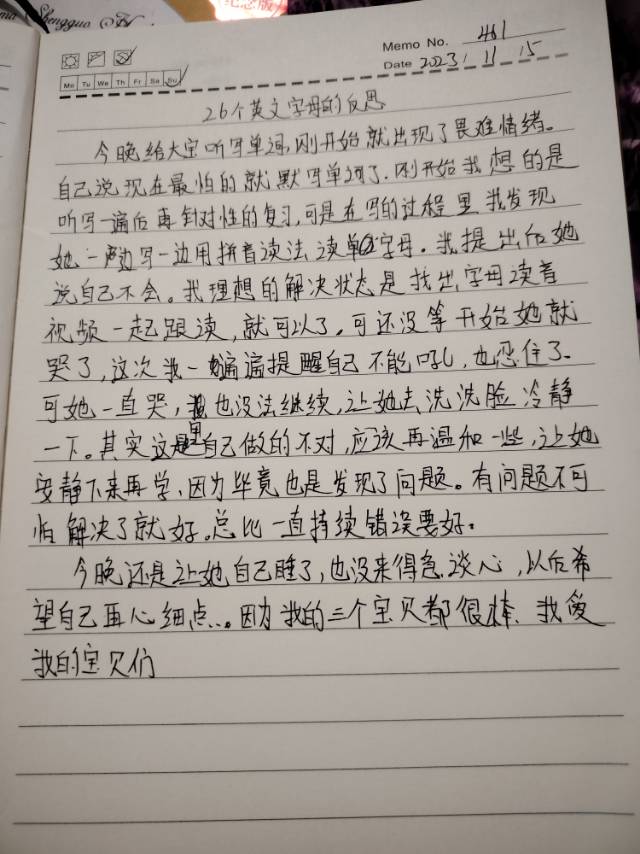 Shengguo
纪念版
Memo No. 461
Mo Tu We Th Fr Sa Su
Date 2023.11.15
26个英文字母的反思
今晚给大宝听写单词,刚开始就出现了畏难情绪。
自己说现在最怕的就默写单词了.刚开始我想的是
听写一遍后再针对性的复习,可是在写的过程里我发现
她一边写一边用拼音读法读单字母.我提出后她
说自己不会。我理想的解决状态是找出字母读音
视频一起跟读,就可以了.可还没等开始她就
哭了,这次我一遍遍提醒自己不能吼,也忍住了.
可她一直哭,我也没法继续,让她去洗洗脸冷静
一下。其实这里是自己做的不对,应该再温和一些,让她
安静下来再学,因为毕竟也是发现了问题。有问题不可
怕解决了就好.总比一直持续错误要好.
今晚还是让她自己睡了,也没来得急谈心,以后希
望自己再心细点...因为我的三个宝贝都很棒、我爱
我的宝贝们